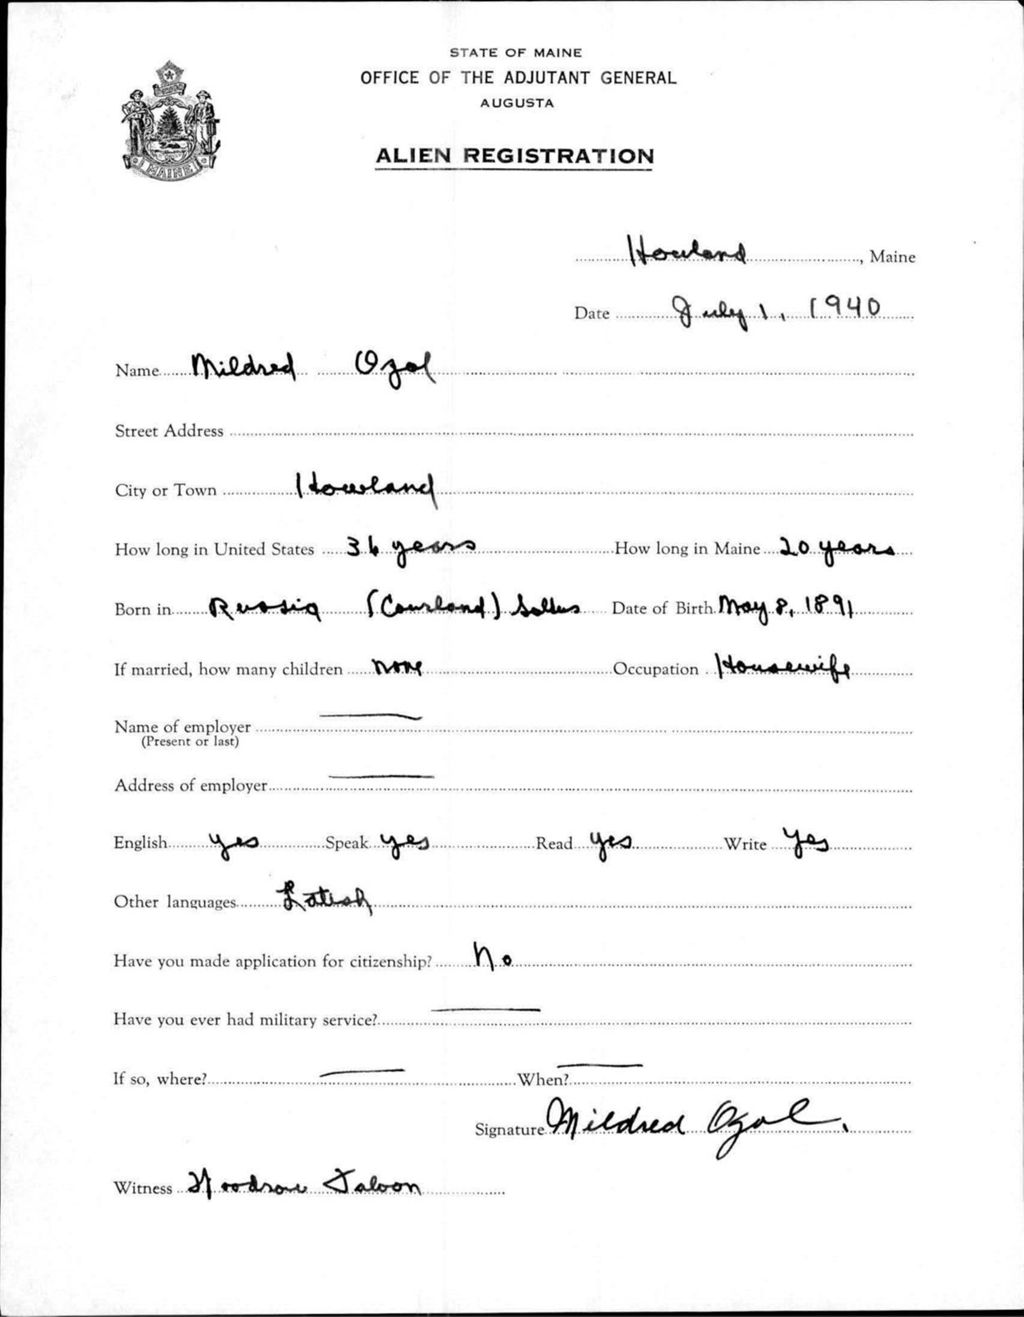 STATE OF MAINE
OFFICE OF THE ADJUTANT GENERAL
AUGUSTA
ALIEN REGISTRATION
MAINE
Howland, Maine
Date July 1, 1940
Name Mildred Ozol
Street Address
City or Town Howland
How long in United States 36 years How long in Maine 20 years
Born in Russia (Courland) Date of Birth May 8, 1891
If married, how many children none Occupation Housewife
Name of employer
(Present or last)
Address of employer
English yes Speak yes Read yes Write yes
Other languages Latish
Have you made application for citizenship? No
Have you ever had military service?
If so, where? When?
Signature Mildred Ozol.
Witness Woodrow